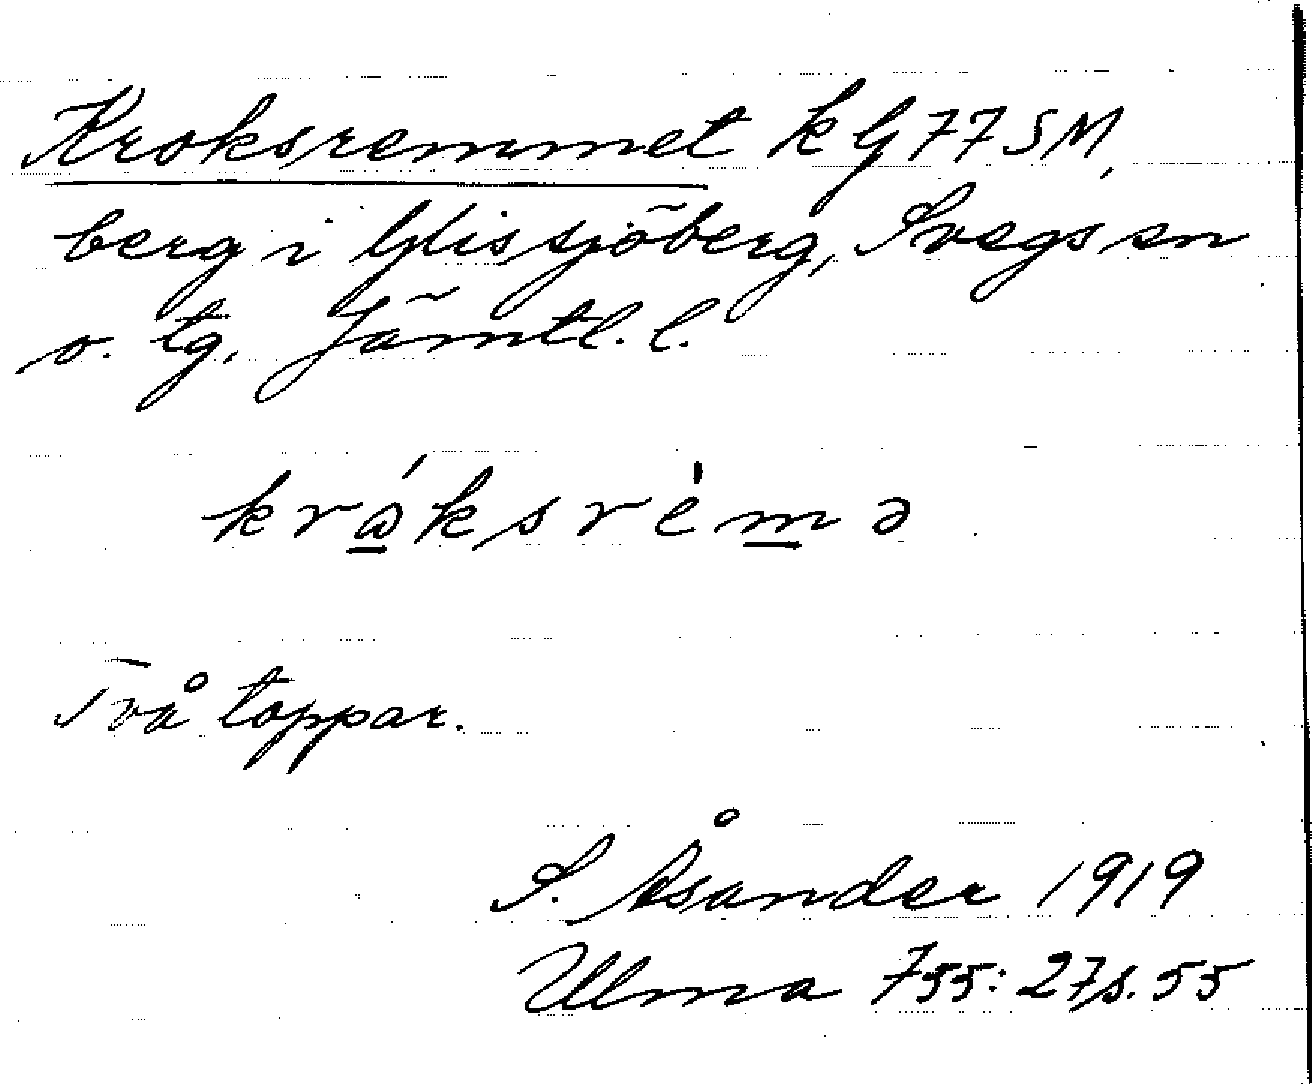 Kroksremmet k G77SM,
berg i Glissjöberg, Svegs sn
o. tg, Jämtl. l.
kråksrèmə
Två toppar.
S. Åsander 1919
Ulma 755:27 s. 55